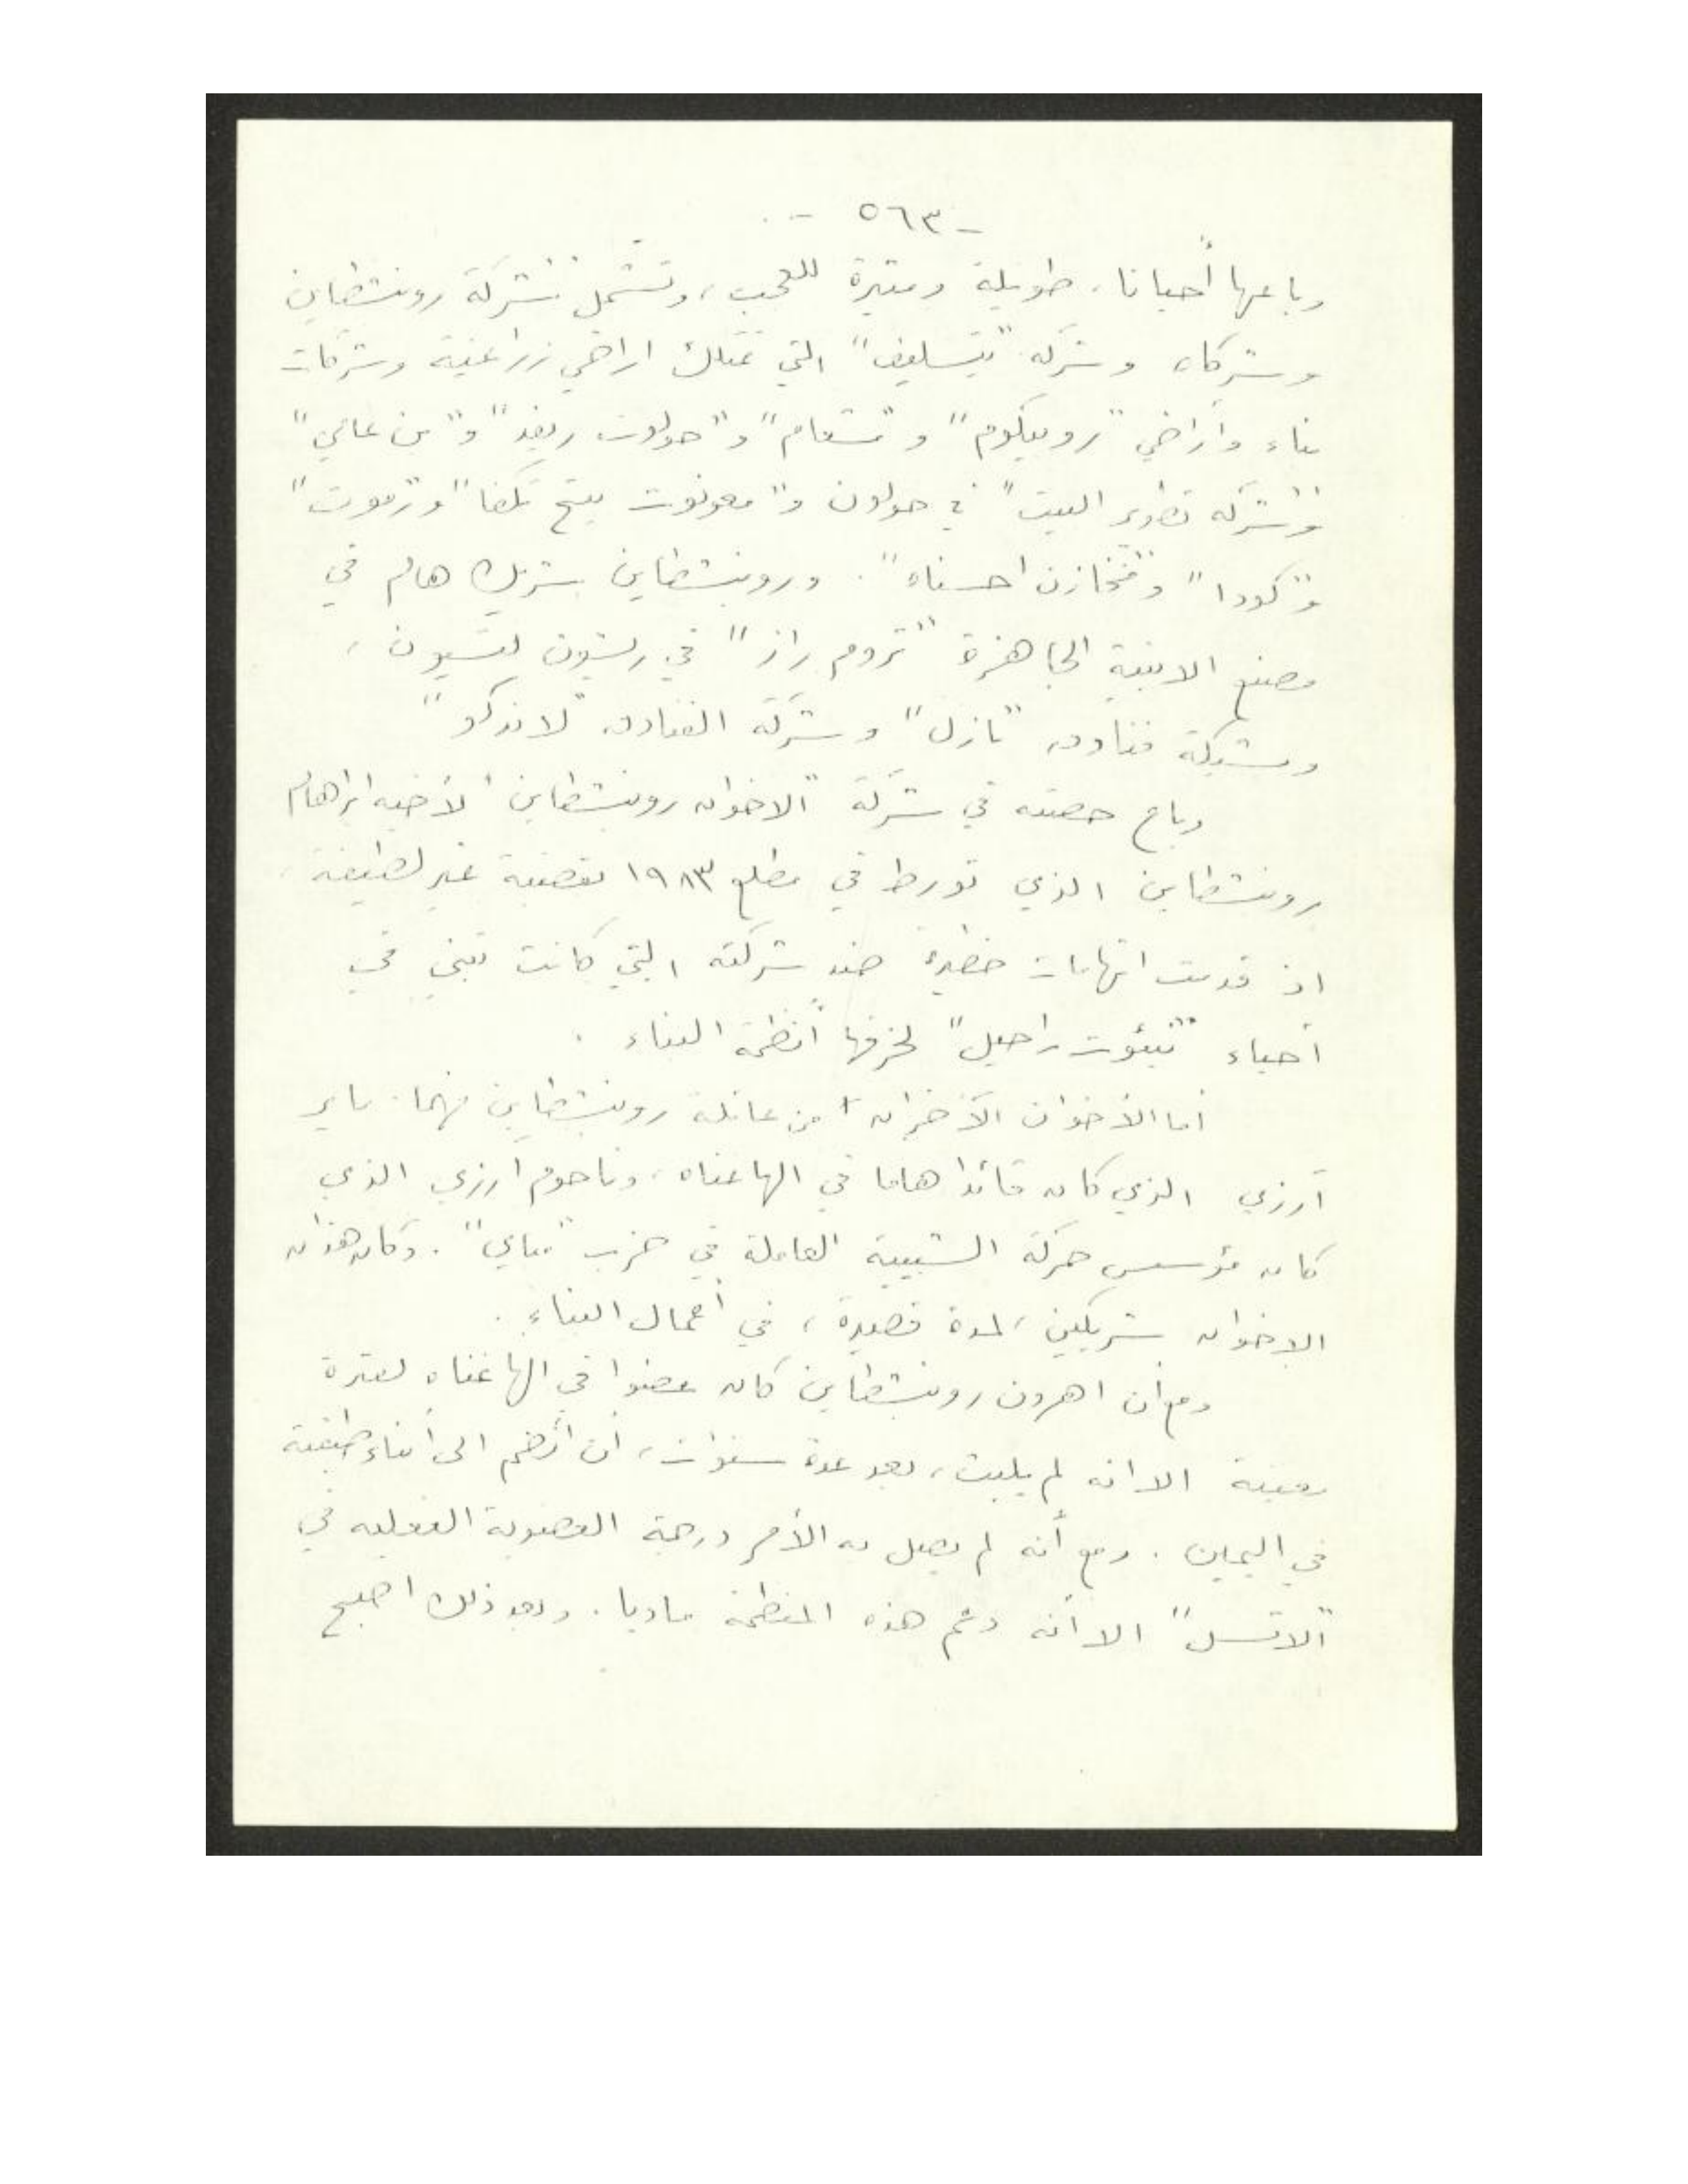 - ٥٦٣ -
وباعها أحيانا، طويلة ومثيرة للعجب، وتشمل "شركة روبنشطاين
وشركاه وشركة "يتسليف" التي تمتلك اراضي زراعية وشركات
بناء وأراضي "روبيكوم" و"مشعام" و"حولوت ريفد" و"بن عامي"
و"شركة تطوير البيت" في حولون و"معونوت بيتح تكفا" و"رموت"
و"كودا" و"مخازن احسناه". وروبنشطاين شريك هام في
مصنع الابنية الجاهزة "تروم راز" في ريشون لتسيون،
وشبكة فنادق "بازل" وشركة الفنادق "لاندكو"
وباع حصته في شركة "الاخوان روبنشطاين" لأخيه ابراهام
روبنشطاين الذي تورط في مطلع ١٩٨٣ بقضية غير لطيفة،
اذ قدمت اتهامات خطيرة ضد شركته التي كانت تبني في
أحياء "نيئوت راحيل" لخرقها أنظمة البناء.
أما الأخوان الآخران من عائلة روبنشطاين فهما. ماير
آرزي الذي كان قائدا هاما في الهاغناه، وناحوم ارزي الذي
كان مؤسس حركة الشبيبة العاملة في حزب "مباي". وكان هذان
الاخوان شريكين، لمدة قصيرة، في أعمال البناء.
ومع أن اهرون روبنشطاين كان عضوا في الهاغناه لفترة
معينة الا انه لم يلبث، بعد عدة سنوات، أن انضم الى أبناء طبقته
في اليمين. ومع أنه لم يصل به الأمر درجة العضوية الفعلية في
"الاتسل" الا أنه دعم هذه المنظمة ماديا. وبعد ذلك اصبح